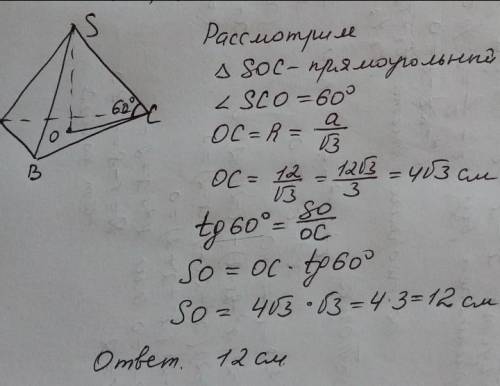 S
60°
C
O
B
Рассмотрим
△ SOC - прямоугольный
∠ SCO = 60°
OC = R = a/√3
OC = 12/√3 = 12√3/3 = 4√3 см
tg 60° = SO/OC
SO = OC · tg 60°
SO = 4√3 · √3 = 4 · 3 = 12 см
Ответ. 12 см